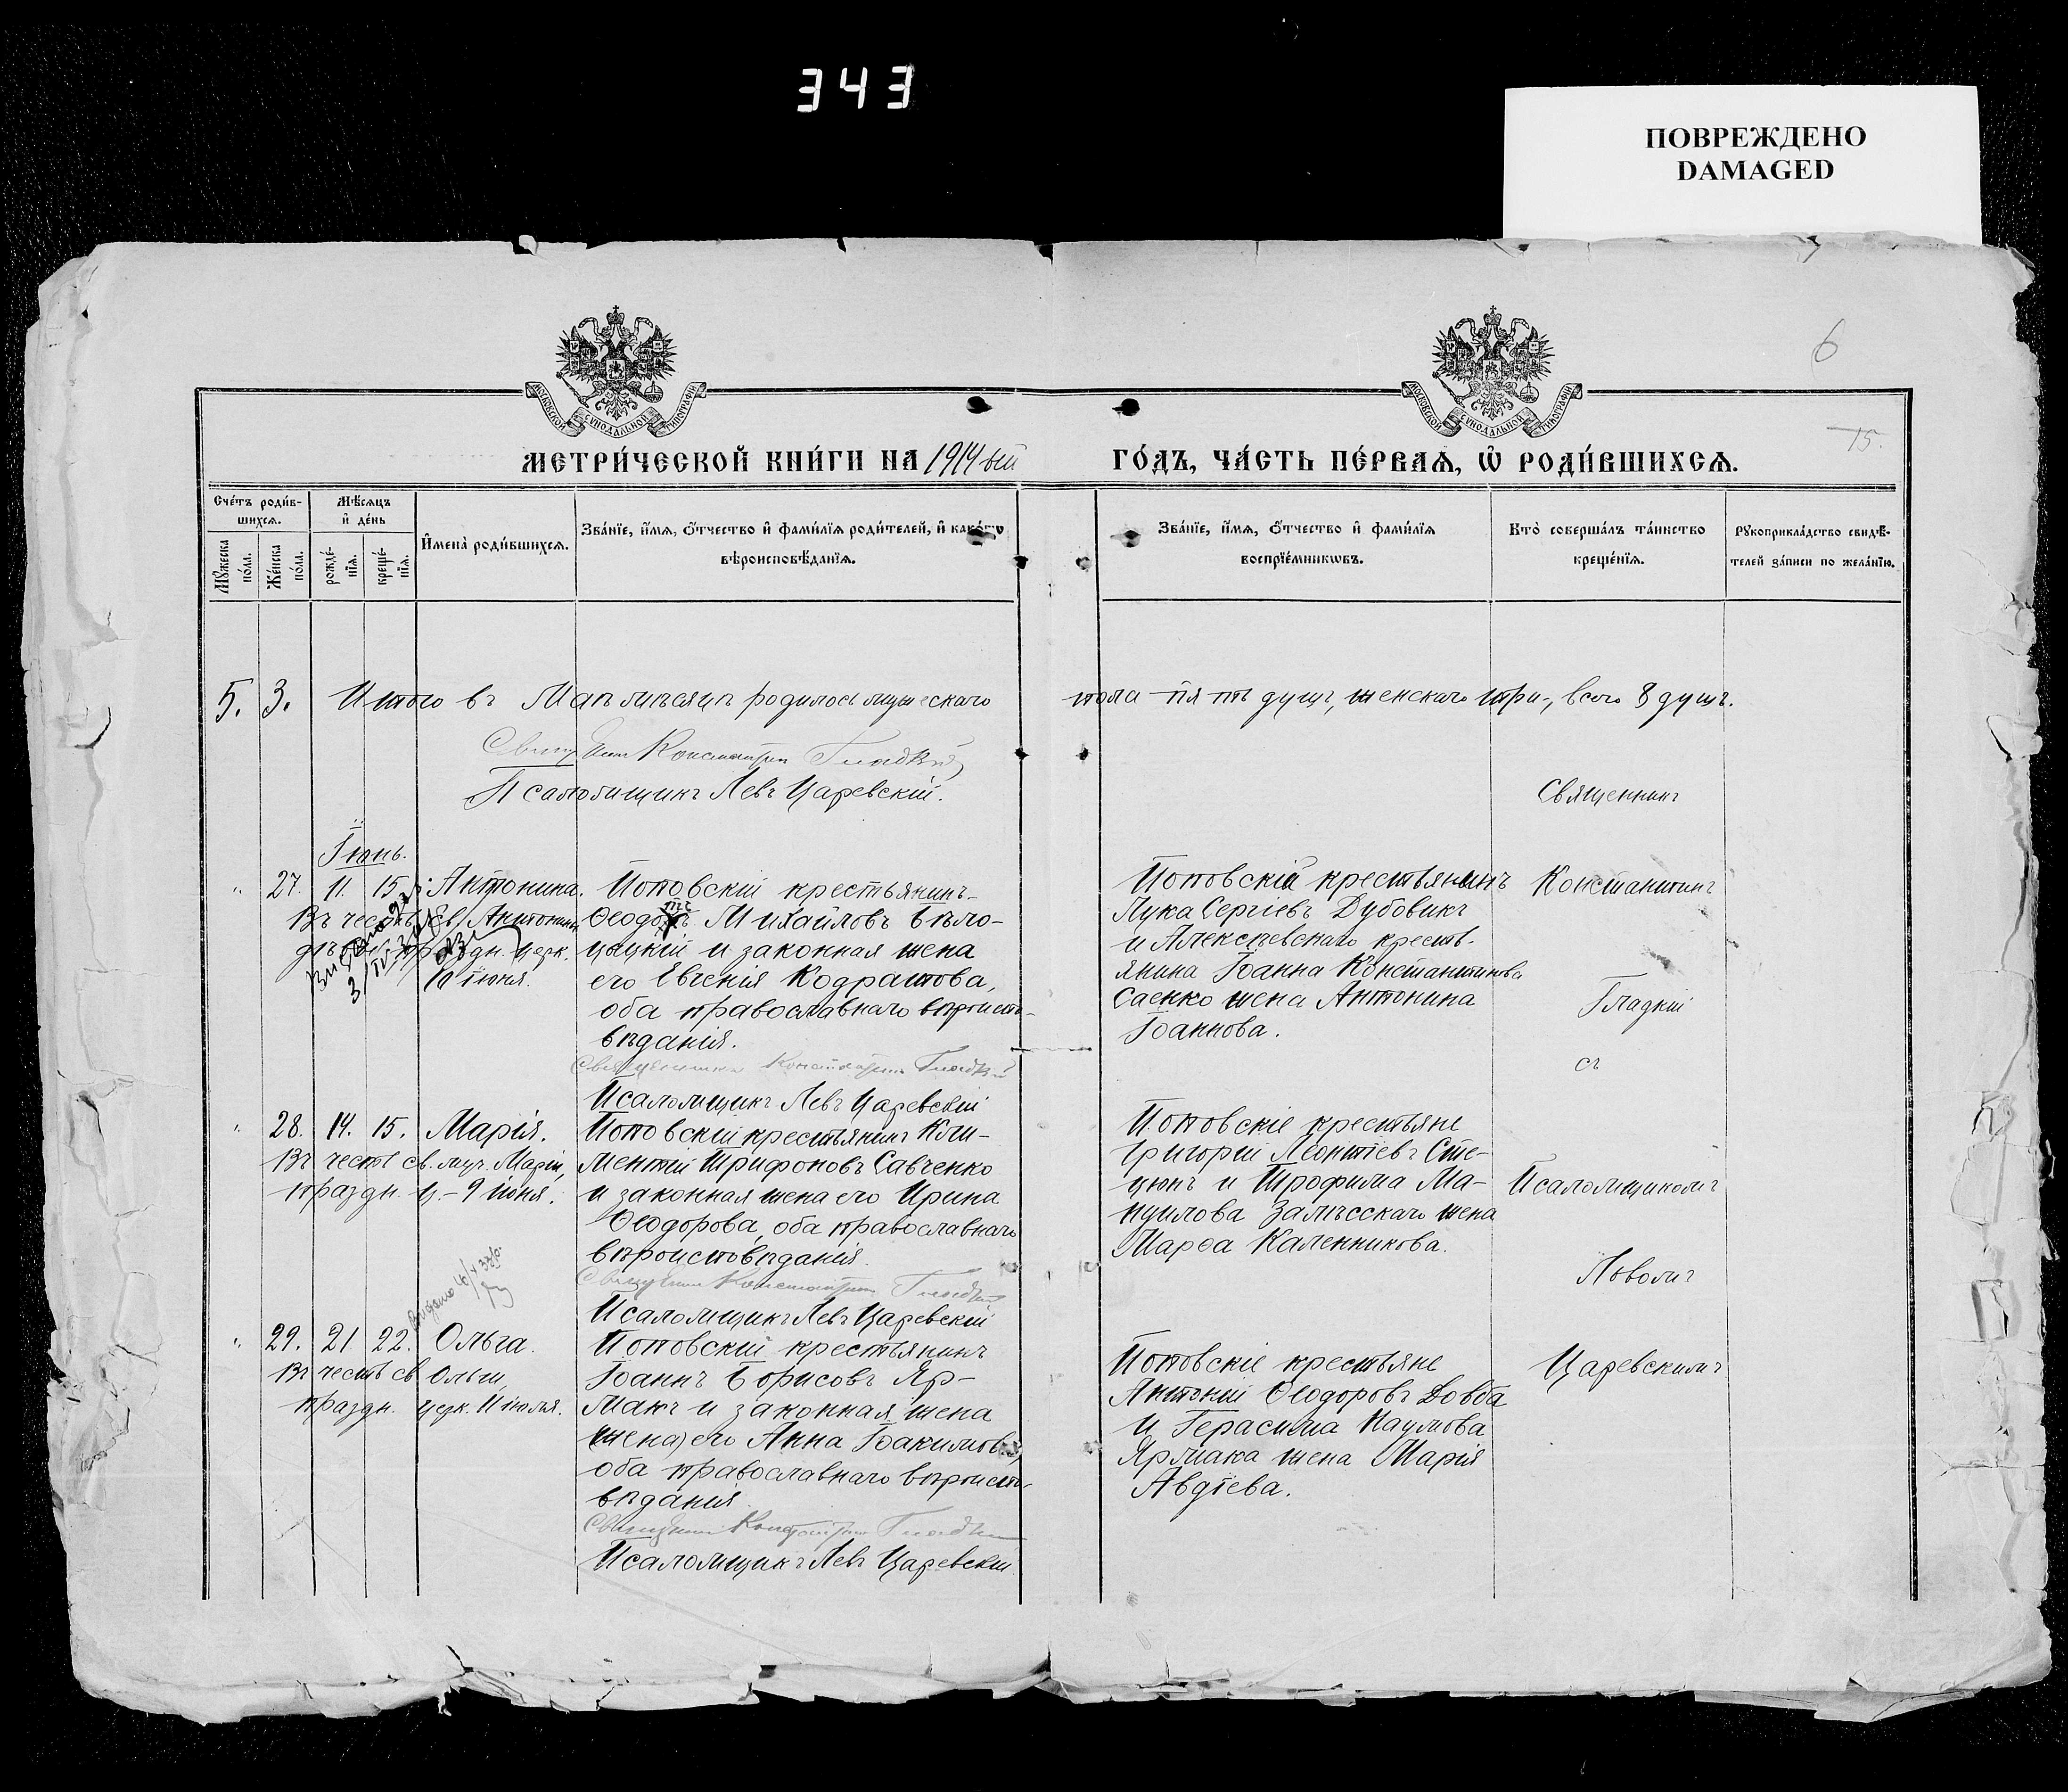 343
ПОВРЕЖДЕНО
DAMAGED
6
15.
МОСКОВСКОЙ СѴНОДАЛЬНОЙ ТИПОГРАФІИ
МОСКОВСКОЙ СѴНОДАЛЬНОЙ ТИПОГРАФІИ
МЕТРИ́ЧЕСКОЙ КНИ́ГИ НА 1914 ый
ГО́ДЪ, ЧА́СТЬ ПЕ́РВАѦ, Ѡ҆ РОДИ́ВШИХСѦ.
Сче́тъ роди́в-
шихсѧ.
Мꙋ́жеска по́ла.
Же́нска по́ла.
Мѣ́сѧцъ
и҆ де́нь
рожде́-
нїѧ.
креще́-
нїѧ.
И҆мена̀ роди́вшихсѧ.
Зва́нїе, и҆́мѧ, ѻ҆́тчество и҆ фами́лїѧ роди́телей, и҆ како́гѡ
вѣроисповѣ́данїѧ.
Зва́нїе, и҆́мѧ, ѻ҆́тчество и҆ фами́лїѧ
воспрїе́мникѡвъ.
Кто̀ соверша́лъ та́инство
креще́нїѧ.
Рꙋкоприкла́дство свидѣ́-
телей за́писи по жела́нїю.
5. 3. Итого въ Маѣ мѣсяцѣ родилось мужескаго
пола пять душъ, женскаго три, всего 8 душъ.
Священник Константин Гладкий
Псаломщикъ Левъ Царевскій.
Священник
Іюнь.
27. 11. 15. Антонина.
Въ честь св. Антонины
праздн. церк.
10 іюня.
Поповскій крестьянинъ
Ѳеодотъ Михайловъ Бѣло-
цыцкій и законная жена
его Евгенія Кодратова,
оба православнаго вѣроиспо-
вѣданія.
Священник Константин Гладкий
Псаломщикъ Левъ Царевскій
Поповскій крестьянинъ
Лука Сергіевъ Дубовикъ
и Алексѣевскаго кресть-
янина Іоанна Константинова
Саенко жена Антонина
Іоаннова.
Константинъ
Гладкій
съ
28. 14. 15. Марія.
Въ честь св. муч. Маріи,
праздн. ц. – 9 іюня.
Поповскій крестьянинъ Кли-
ментій Трифоновъ Савченко
и законная жена его Ирина
Ѳеодорова, оба православнаго
вѣроисповѣданія.
Священник Константин Гладкий
Псаломщикъ Левъ Царевскій
Поповскіе крестьяне
Григорій Леонтіевъ Сте-
цюнъ и Трофима Ма-
нуилова Залѣсскаго жена
Марѳа Каленникова.
Псаломщикомъ
Львомъ
29. 21. 22. Ольга.
Въ честь св Ольги,
праздн. церк. 11 іюля.
Поповскій крестьянинъ
Іоаннъ Борисовъ Яр-
макъ и законная жена
(жена) его Анна Іоакимова,
оба православнаго вѣроиспо-
вѣданія
Священник Константин Гладкий
Псаломщикъ Левъ Царевскій
Поповскіе крестьяне
Антоній Ѳеодоровъ Довба
и Герасима Наумова
Ярмака жена Марія
Авдіева.
Царевскимъ